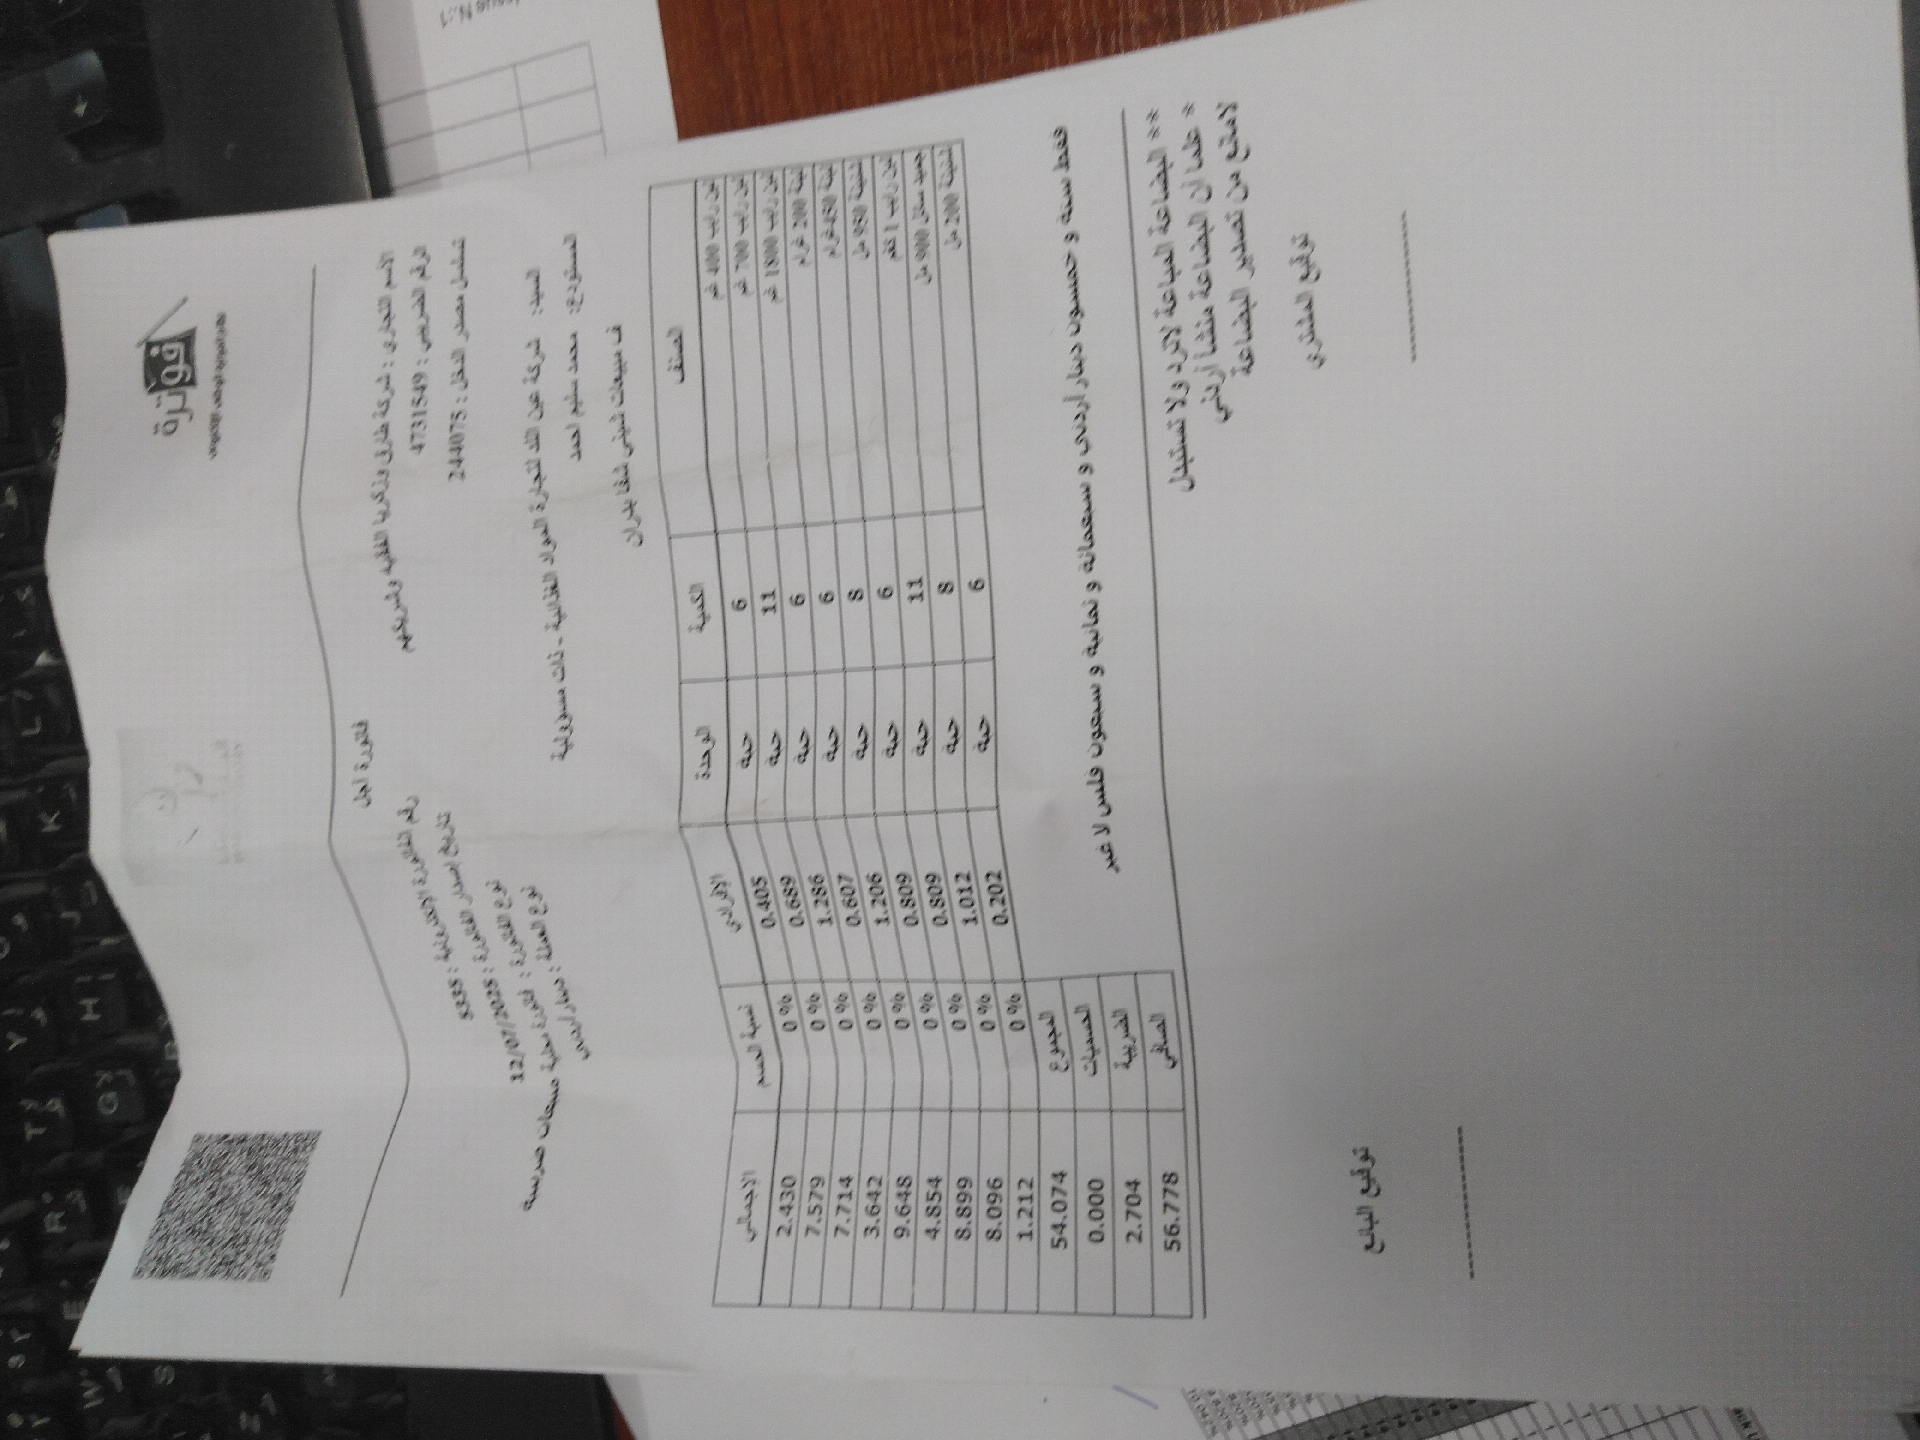 فوترة
فاتورة آجل
الاسم التجاري : شركة طارق وزكريا الفقيه وشريكهم
الرقم الضريبي : 4731549
تسلسل مصدر الدخل : 244075
رقم الفاتورة الإلكترونية : 5335
تاريخ إصدار الفاتورة : 12/07/2025
نوع الفاتورة : فاتورة محلية مبيعات ضريبية
نوع العملة : دينار أردني
السيد: شركة عين اللد لتجارة المواد الغذائية - ذات مسؤولية
المستودع: محمد سليم احمد
ف مبيعات شيني شفا بدران
الصنف الكمية الوحدة الإفرادي نسبة الحسم الإجمالي
لبن رايب 400 غم 6 حبة 0.405 0 % 2.430
لبن رايب 700 غم 11 حبة 0.689 0 % 7.579
لبن رايب 1800 غم 6 حبة 1.286 0 % 7.714
لبنة 200 غرام 6 حبة 0.607 0 % 3.642
لبنة 450 غرام 8 حبة 1.206 0 % 9.648
شنينة 950 مل 6 حبة 0.809 0 % 4.854
لبن رايب 1 كغم 11 حبة 0.809 0 % 8.899
جميد سائل 900 مل 8 حبة 1.012 0 % 8.096
شنينة 200 مل 6 حبة 0.202 0 % 1.212
المجموع 54.074
الحسميات 0.000
الضريبة 2.704
الصافي 56.778
فقط ستة و خمسون دينار أردني و سبعمائة و ثمانية و سبعون فلس لا غير
** البضاعة المباعة لاترد ولا تستبدل
* علما ان البضاعة منشأ أردني
لامانع من تصدير البضاعة
توقيع المشتري
توقيع البائع